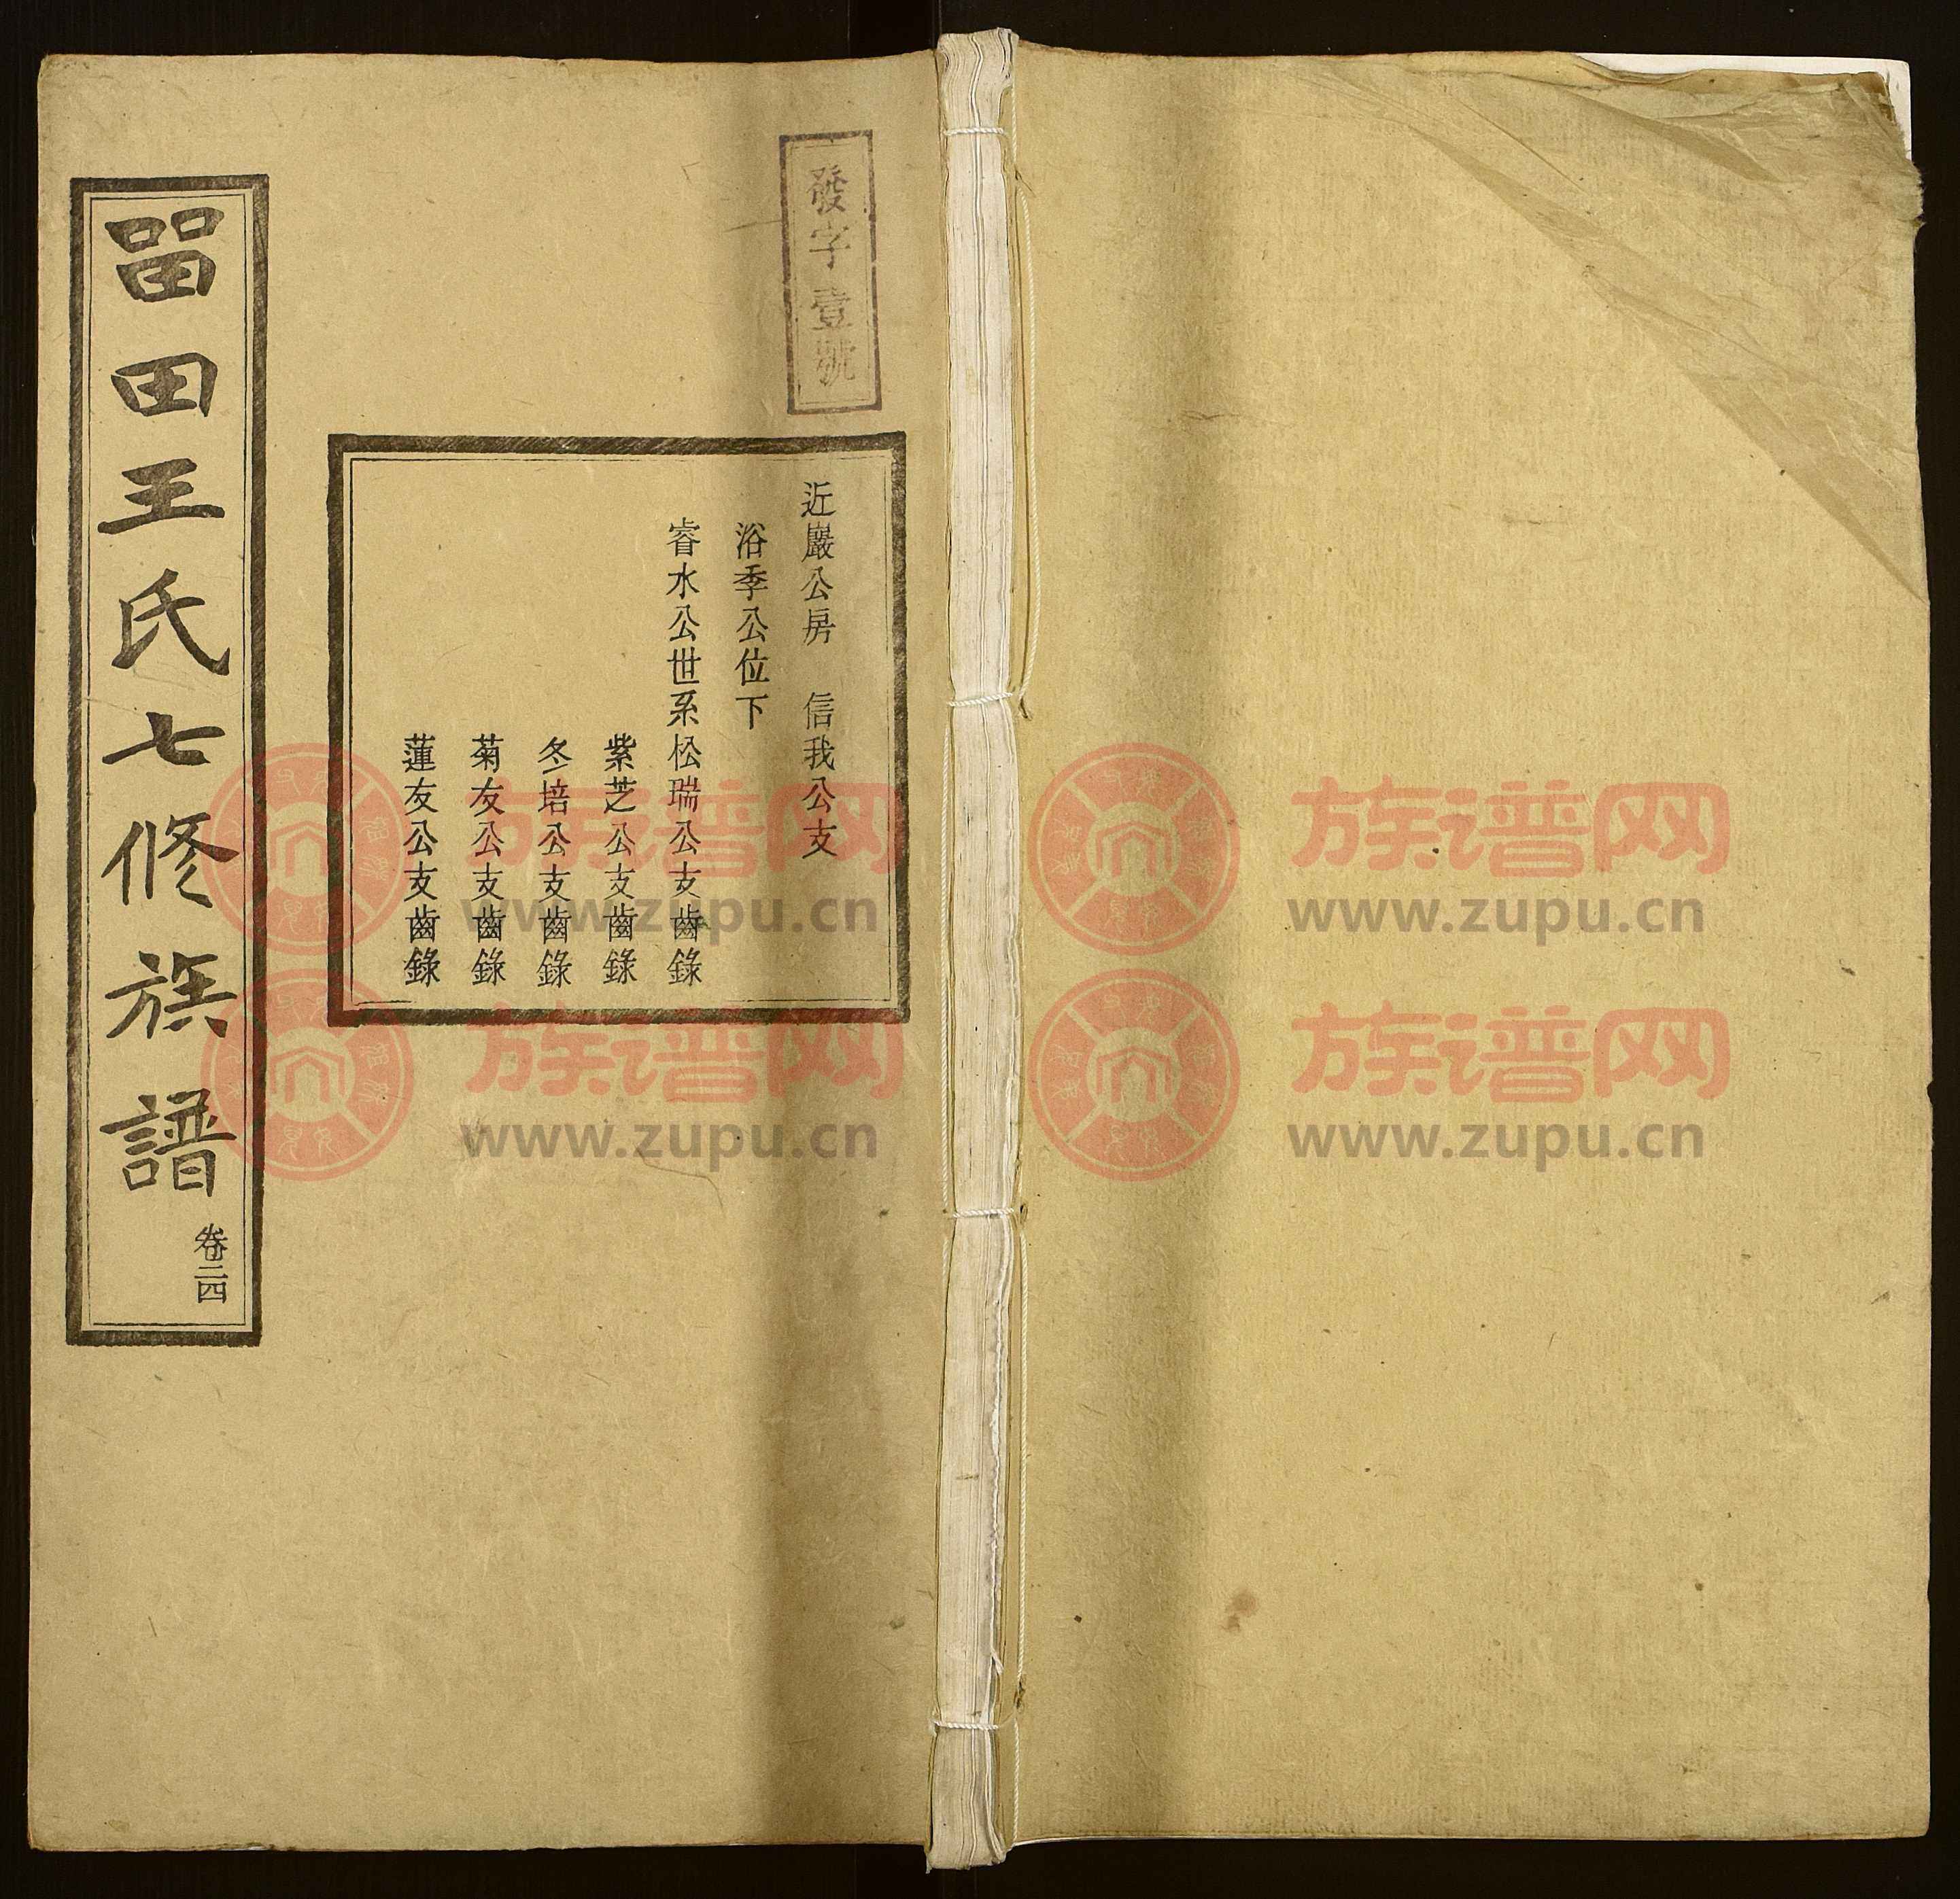 發字壹號
近巖公房 信我公支
浴季公位下
睿水公世系松瑞公支齒錄
紫芝公支齒錄
冬培公支齒錄
菊友公支齒錄
蓮友公支齒錄
畱田王氏七修族譜
卷二四
族谱网
www.zupu.cn
族谱网
www.zupu.cn
族谱网
www.zupu.cn
族谱网
www.zupu.cn